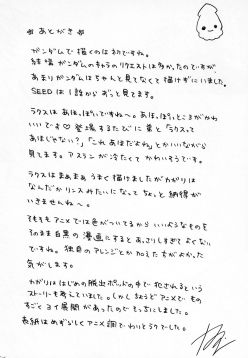 ✿ あとがき ✿
ガンダムで描くのは初ですね。
結構ガンダムのキャラのリクエストは多かったのですが、
あまりガンダムはちゃんと見てなくて描けずにいました。
SEEDは1話からずっと見てます。
ラクスはあほっぽいですね〜。あほっぽいところがかわ
いいです♡ 登場するたびに 「ラクスって
あほじゃない?」「これあほだよね」とかいいながら
見てます。アスランが冷たくてかわいそうです。
ラクスはまぁまぁうまく描けましたがカガリは
なんだかリンスみたいになってちょっと納得が
いきませんね〜。
そもそもアニメでは色がついてるからいいようなものを
そのまま白黒の漫画にするとあっさりしすぎてよくない
ですね。独自のアレンジとか加えた方がよかった
気がします。
カガリははじめの脱出ポッドの中で犯されるという
ストーリーも考えていました。(しかしちょうどアニメでもの
すごくヨイ展開があったのでそっちにしました。
表紙はめずらしくアニメ調でぬりとうりでした。